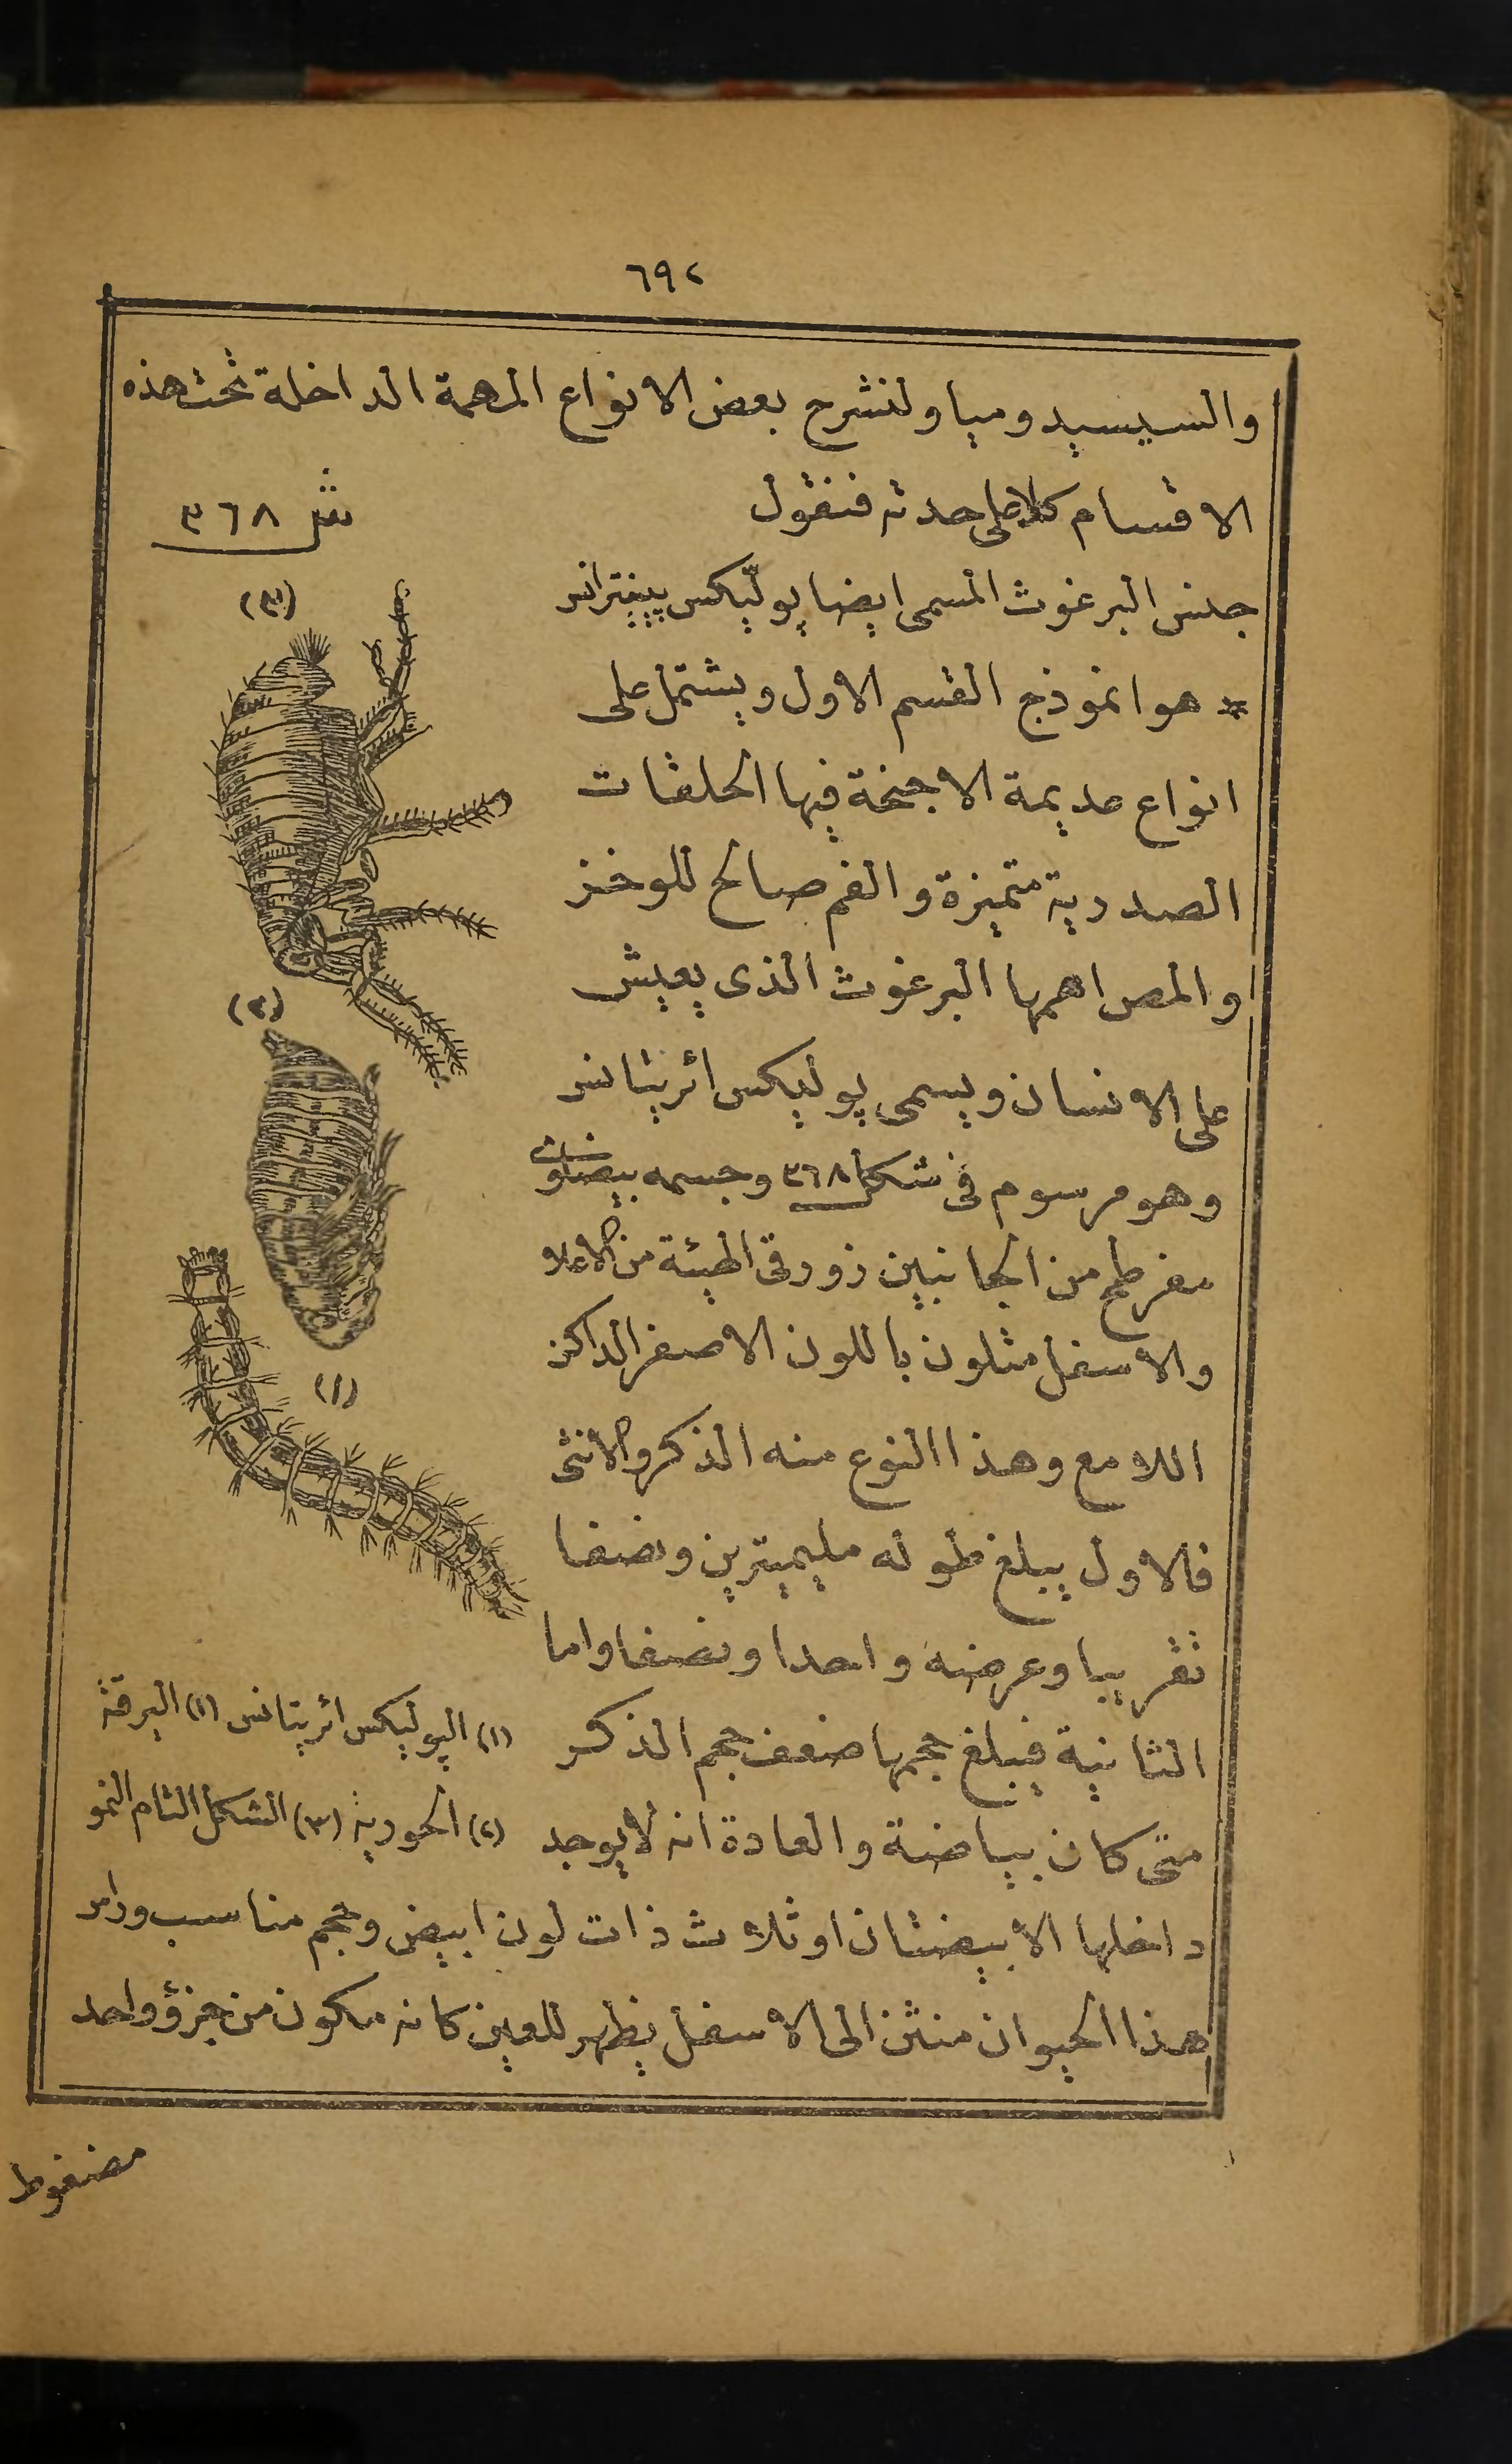 ٦٩٢
والسيسيدوميا ولنشرح بعض الانواع المهمة الداخلة تحت هذه
الاقسام كلا على حدته فنقول
شكل ٣٦٨
جنس البرغوث المسمى ايضا پوليكس پينترانس
* هو انموذج القسم الاول ويشتمل على
انواع عديمة الاجنحة فيها الحلقات
الصدرية متميزة والفم صالح للوخز
والمص اهمها البرغوث الذى يعيش
على الانسان ويسمى پوليكس ائريتانس
وهو مرسوم فى شكل ٣٦٨ وجسمه بيضاوى
مفرطح من الجانبين زورقى الهيئة من الاعلا
والاسفل متلون باللون الاصفر الداكن
اللامع وهذا النوع منه الذكر والانثى
فالاول يبلغ طوله مليميترين ونصفا
تقريبا وعرضه واحدا ونصفا واما
الثانية فيبلغ حجمها ضعف حجم الذكر
متى كان بياضة والعادة انه لا يوجد
داخلها الا بيضتان او ثلاث ذات لون ابيض وحجم مناسب وراس
هذا الحيوان منثن الى الاسفل يظهر للعين كانه مكون من جزؤ واحد
(٣)
(٢)
(١)
(١) الپوليكس ائريتانس (١) اليرقة
(٢) الحورية (٣) الشكل التام النمو
مضغوط